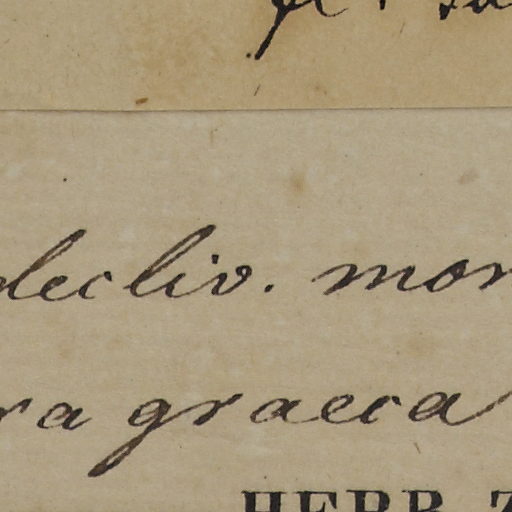 decliv. mon
ra graeca
HERB. Z